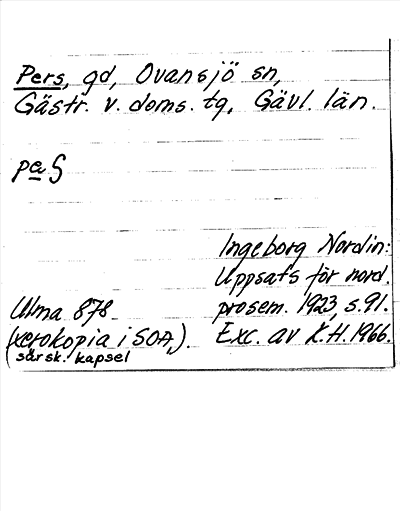 Pers, gd, Ovansjö sn,
Gästr. v. doms. tg, Gävl. län.
pa S
Ingeborg Nordin:
Uppsats för nord.
prosem. 1923, s.91.
Exc. av K.H. 1966.
Ulma 878
(xerokopia i SOA,).
särsk. kapsel